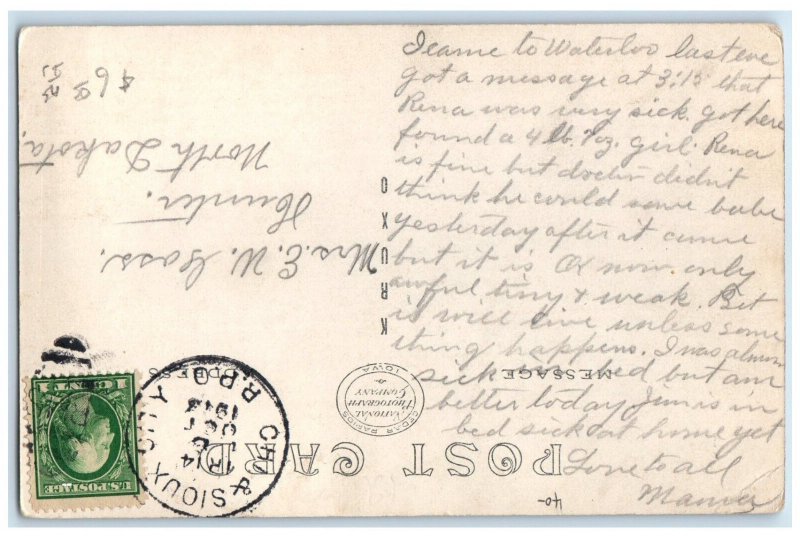 I came to Waterloo last eve
got a message at 3:15 that
Rena was very sick. got here
found a 4 lb. 7oz. girl. Rena
is fine but doctor didn't
think he could save babe
yesterday after it came
but it is OK now only
awful tiny & weak. Bet
is will live unless some
thing happens. I was almost
sick worried but am
better today Jim is in
bed sick at home yet
Love to all
Mama
POST CARD
MESSAGE
ADDRESS
KRUXO
NATIONAL
PHOTOGRAPH
COMPANY
CEDAR RAPIDS
IOWA
Mrs. E. W. Gass.
Hunter.
North Dakota.
CHI. & SIOUX CITY
R.P.O.
TR 14
OCT
1913
U.S. POSTAGE
1 CENT 1
40-